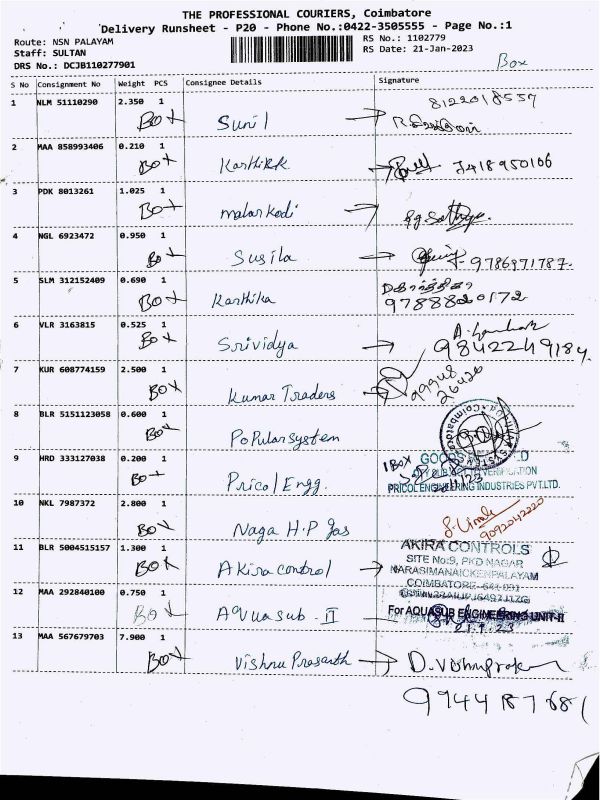 THE PROFESSIONAL COURIERS, Coimbatore
Delivery Runsheet - P20 - Phone No.:0422-3505555 - Page No.:1
Route: NSN PALAYAM
RS No.: 1102779
Staff: SULTAN
RS Date: 21-Jan-2023
DRS No.: DCJB110277901
Box
S No Consignment No Weight PCS Consignee Details Signature
1 NLM 51110290 2.350 1 8122018557
Box Sunil
2 MAA 858993406 0.210 1
Box Karthikk 7418950106
3 PDK 8013261 1.025 1
Box malarkodi
4 NGL 6923472 0.950 1
Box Susila 9786971787.
5 SLM 312152409 0.690 1
Box Karthika 9788820172
6 VLR 3163815 0.525 1
Box Srividya 9842249184
7 KUR 608774159 2.500 1
Box Kumar Traders 99948 26426
8 BLR 5151123058 0.600 1
Box Popular system
9 HRD 333127038 0.200 1 1 Box
Box Pricol Engg.
PRICOL ENGINEERING INDUSTRIES PVT.LTD.
10 NKL 7987372 2.800 1
Box Naga H.P gas 9092042220
11 BLR 5004515157 1.300 1 AKIRA CONTROLS
Box Akira control SITE No:9, PKD NAGAR
NARASIMANAICKENPALAYAM
COIMBATORE- 641 031
12 MAA 292840100 0.750 1
Box Aquasub - II For AQUASUB ENGINEERING UNIT-II
21.1.23
13 MAA 567679703 7.900 1
Box Vishnu Prasanth
9944187681